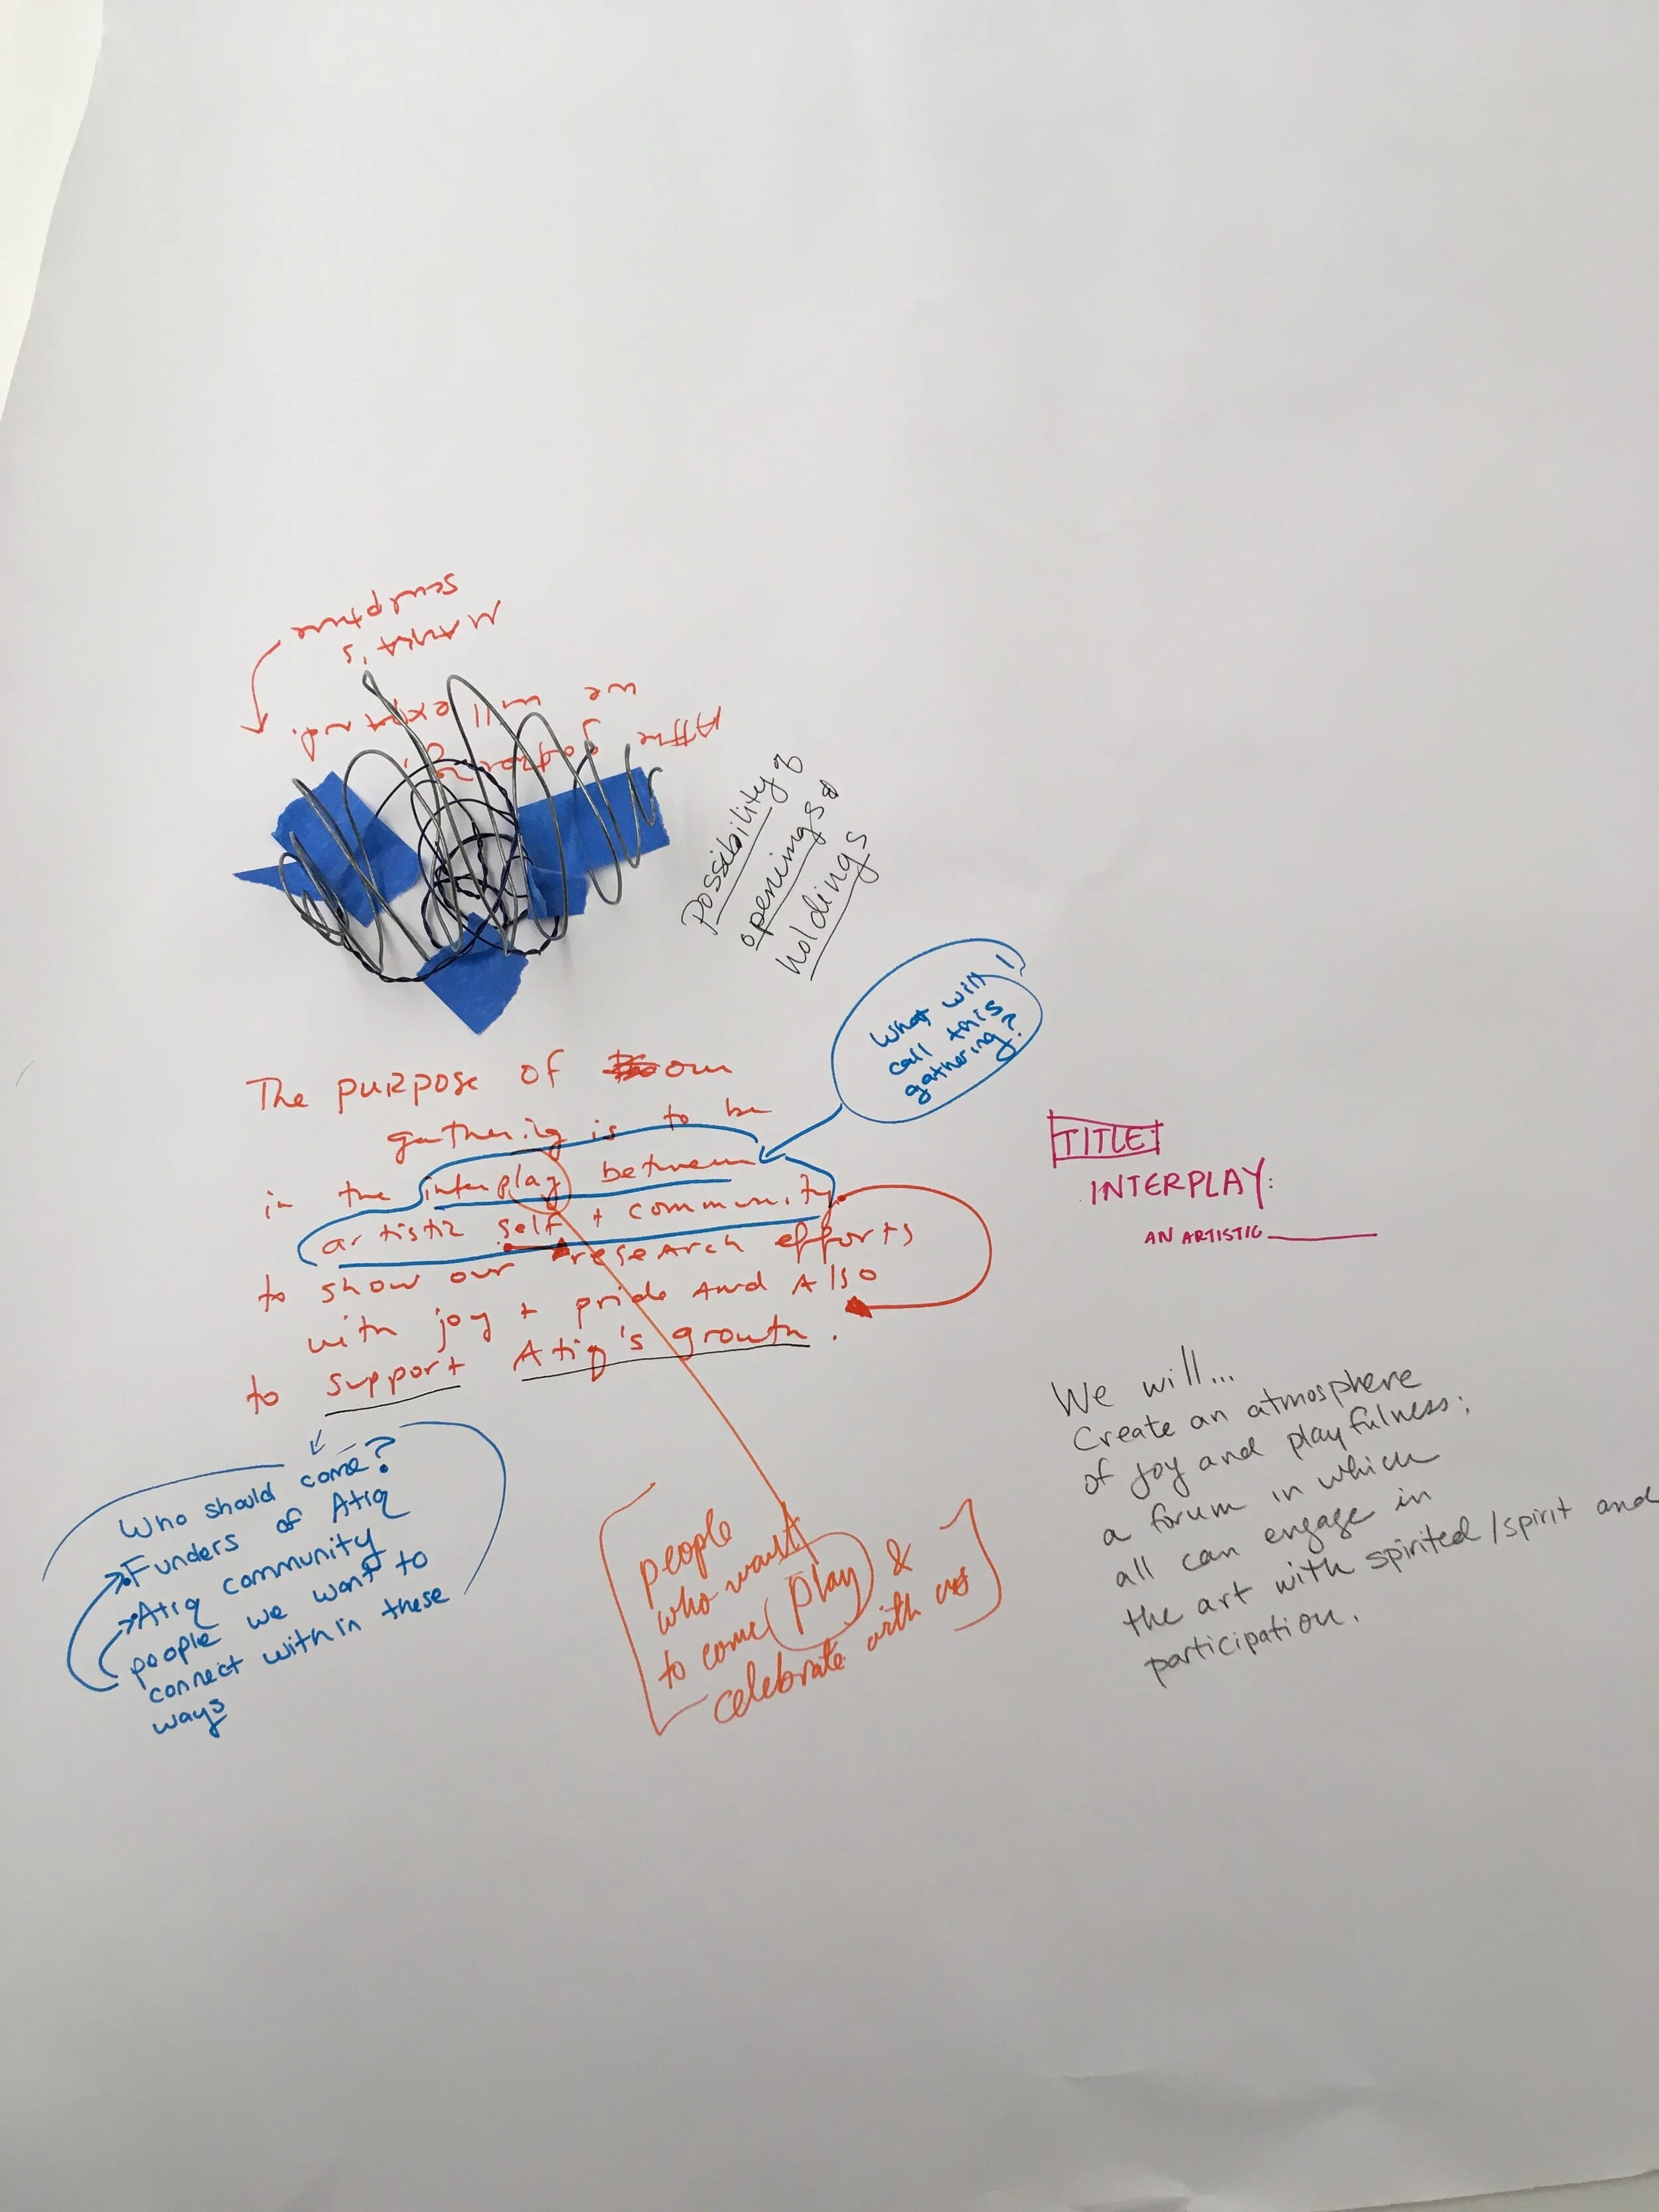 sculpture
MARIA's
we will expand.
After
Possibility of
openings &
holdings
What will
call this
gathering?
The purpose of our
gathering is to be
in the interplay between
artistic self + community
to show our research efforts
with joy + pride and Also
to support Atiq's growth.
TITLE:
INTERPLAY:
AN ARTISTIC
We will...
Create an atmosphere
of joy and playfulness;
a forum in which
all can engage in
the art with spirited/spirit and
participation.
Who should come?
Funders of Atiq
Atiq community
people we want to
connect with in these
ways
people
who want
to come play &
celebrate with us